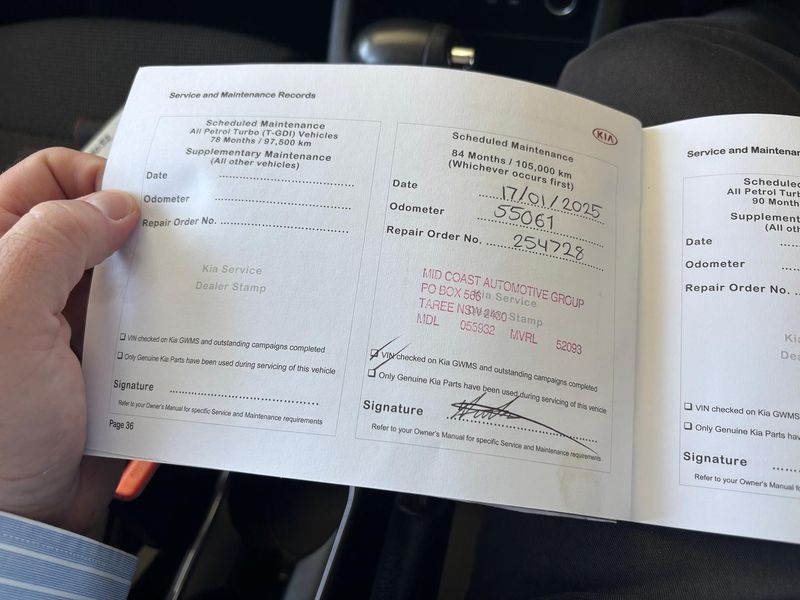 Service and Maintenance Records
Scheduled Maintenance
All Petrol Turbo (T-GDI) Vehicles
78 Months / 97,500 km
Supplementary Maintenance
(All other vehicles)
Date
Odometer
Repair Order No.
Kia Service
Dealer Stamp
❑ VIN checked on Kia GWMS and outstanding campaigns completed
❑ Only Genuine Kia Parts have been used during servicing of this vehicle
Signature
Refer to your Owner's Manual for specific Service and Maintenance requirements
Page 36
KIA
Scheduled Maintenance
84 Months / 105,000 km
(Whichever occurs first)
Date 17/01/2025
Odometer 55061
Repair Order No. 254728
Kia Service
Dealer Stamp
MID COAST AUTOMOTIVE GROUP
PO BOX 566
TAREE NSW 2430
MDL 055932 MVRL 52093
❑ VIN checked on Kia GWMS and outstanding campaigns completed
❑ Only Genuine Kia Parts have been used during servicing of this vehicle
Signature
Refer to your Owner's Manual for specific Service and Maintenance requirements
Service and Maintenan
Schedule
All Petrol Tu
90 Month
Supplem
(All oth
Date
Odometer
Repair Order No.
Kia
Dea
❑ VIN checked on Kia GWMS
❑ Only Genuine Kia Parts hav
Signature
Refer to your Owner's Manual fo